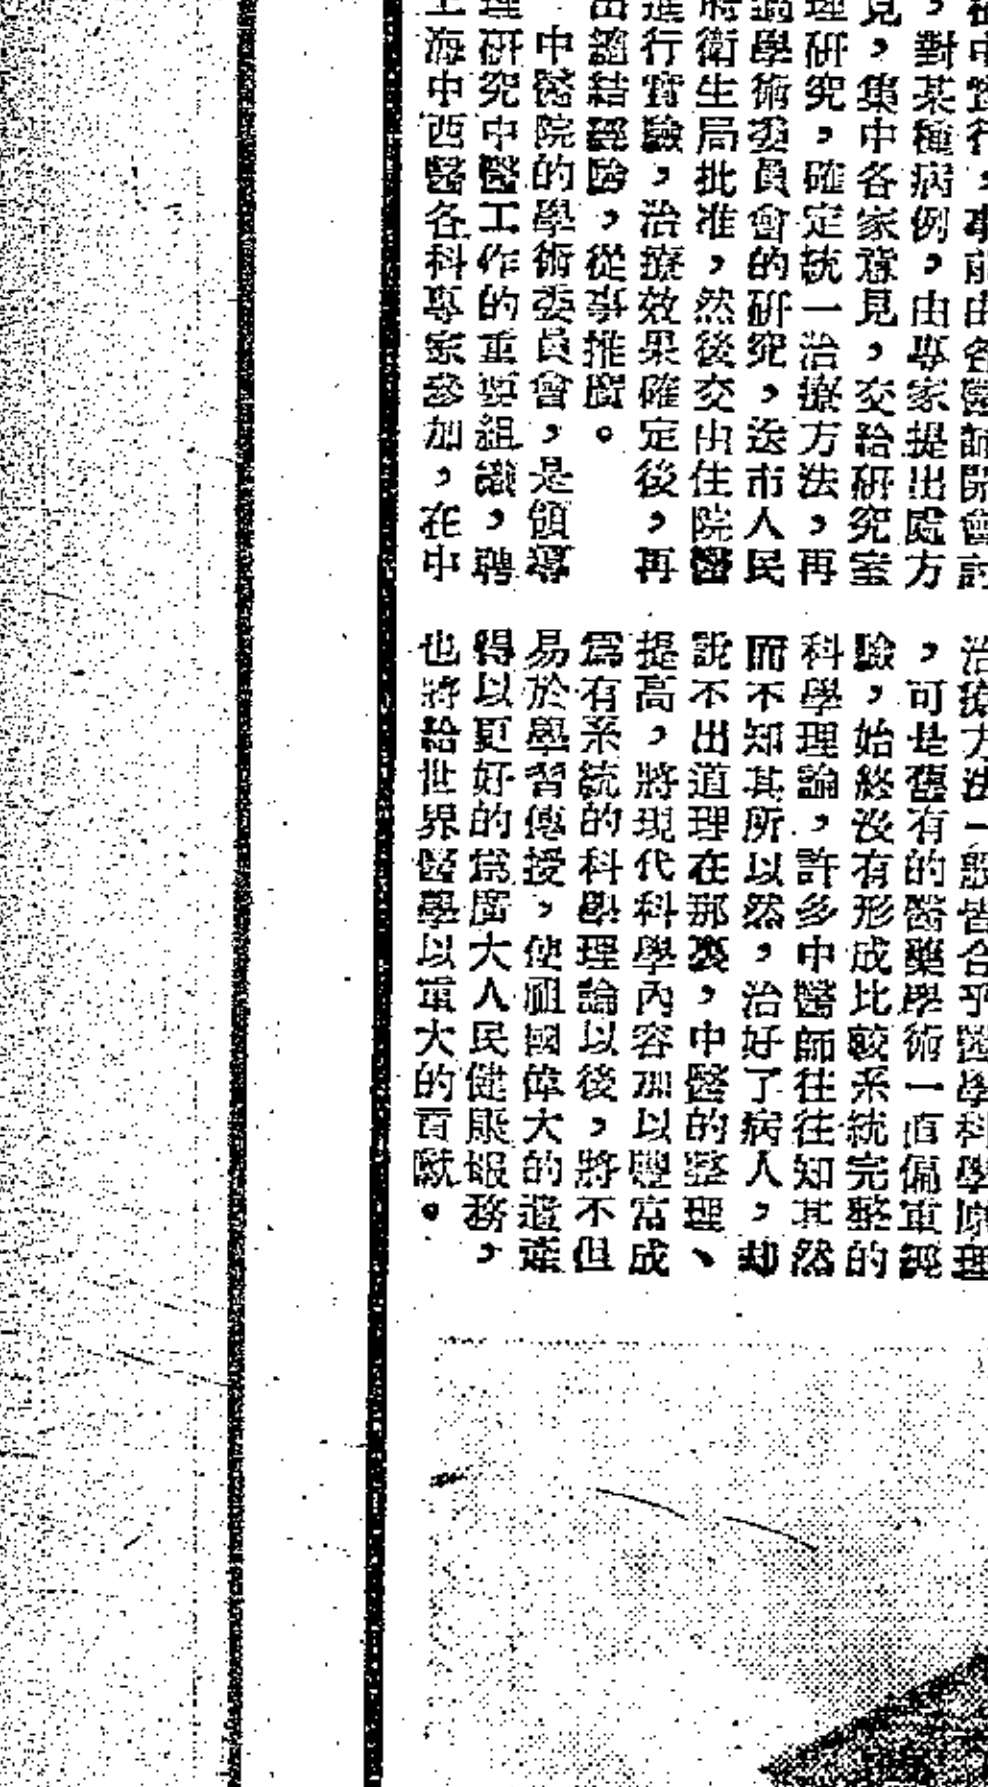 在中實行，事前由各醫師開會討
，對某種病例，由專家提出處方
見，集中各家意見，交給研究室
理研究，確定統一治療方法，再
過學術委員會的研究，送市人民
府衛生局批准，然後交由住院醫
進行實驗，治療效果確定後，再
出總結經驗，從事推廣。
中醫院的學術委員會，是領導
理研究中醫工作的重要組織，聘
上海中西醫各科專家參加，在中
治療方法一般皆合乎醫學科學原理
，可是舊有的醫藥學術一直偏重經
驗，始終沒有形成比較系統完整的
科學理論，許多中醫師往往知其然
而不知其所以然，治好了病人，却
說不出道理在那裏，中醫的整理、
提高，將現代科學內容加以豐富成
爲有系統的科學理論以後，將不但
易於學習傳授，使祖國偉大的遺產
得以更好的爲廣大人民健康服務，
也將給世界醫學以重大的貢獻。